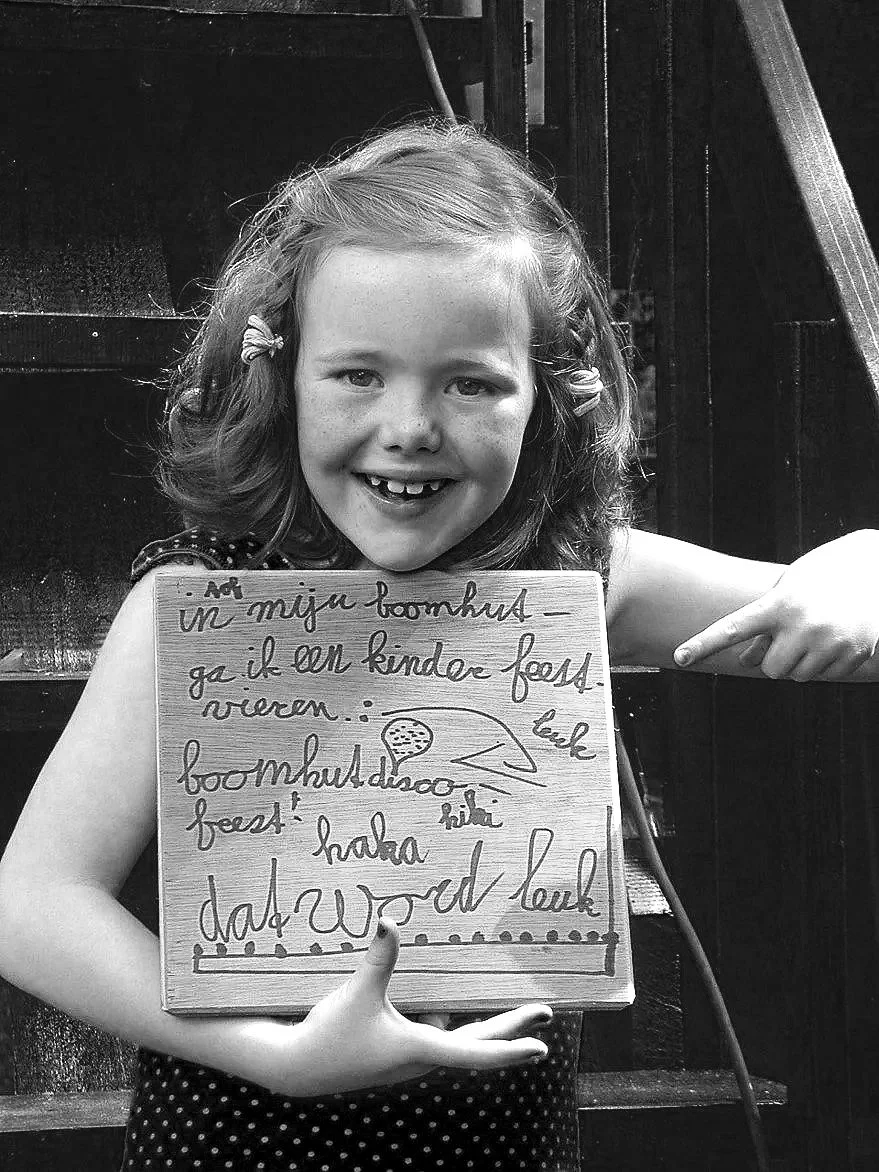 in mijn boomhut -
ga ik een kinder feest-
vieren.:
leuk
boomhut disco
feest!
hihi
haha
dat word leuk